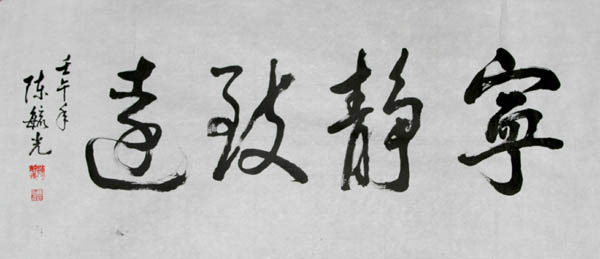 寧靜致遠
壬午年
陈毓光